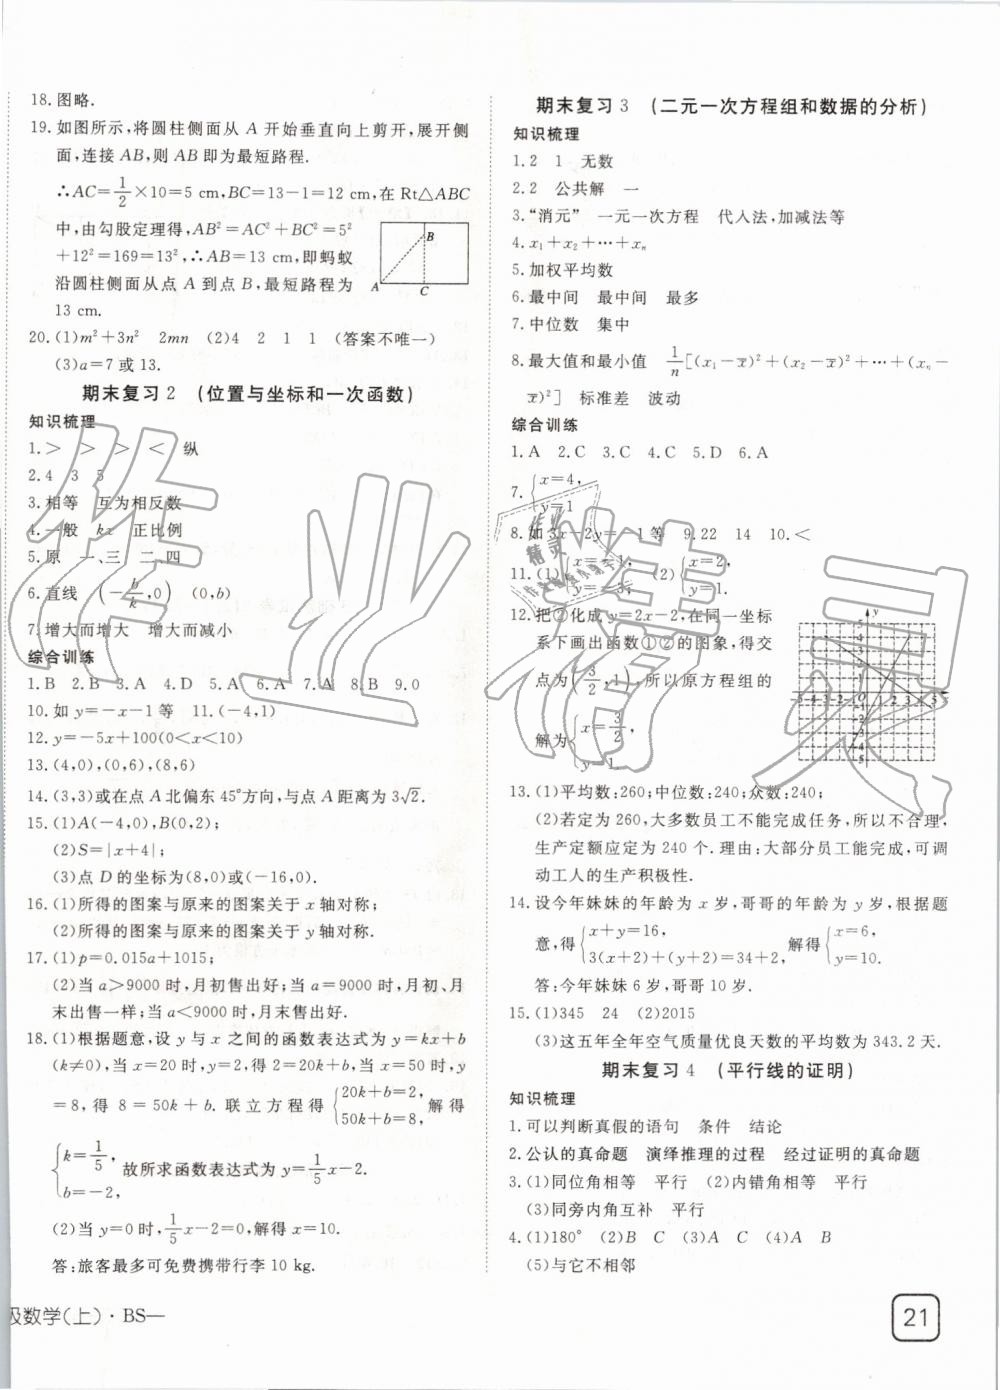 18.图略.
19.如图所示,将圆柱侧面从 A 开始垂直向上剪开,展开侧
面,连接 AB,则 AB 即为最短路程.
∴AC=1/2×10=5 cm,BC=13-1=12 cm,在 Rt△ABC
中,由勾股定理得,AB²=AC²+BC²=5²
+12²=169=13²,∴AB=13 cm,即蚂蚁
沿圆柱侧面从点 A 到点 B,最短路程为
13 cm.
A
B
C
20.(1)m²+3n² 2mn (2)4 2 1 1 (答案不唯一)
(3)a=7 或 13.
期末复习 2 (位置与坐标和一次函数)
知识梳理
1.> > > < 纵
2.4 3 5
3.相等 互为相反数
4.一般 kx 正比例
5.原 一、三 二、四
6.直线 (-b/k,0) (0,b)
7.增大而增大 增大而减小
综合训练
1.B 2.B 3.A 4.D 5.A 6.A 7.A 8.B 9.0
10.如 y=-x-1 等 11.(-4,1)
12.y=-5x+100(0<x<10)
13.(4,0),(0,6),(8,6)
14.(3,3)或在点 A 北偏东 45°方向,与点 A 距离为 3√2.
15.(1)A(-4,0),B(0,2);
(2)S=|x+4|;
(3)点 D 的坐标为(8,0)或(-16,0).
16.(1)所得的图案与原来的图案关于 x 轴对称;
(2)所得的图案与原来的图案关于 y 轴对称.
17.(1)p=0.015a+1015;
(2)当 a>9000 时,月初售出好;当 a=9000 时,月初、月
末出售一样;当 a<9000 时,月末售出好.
18.(1)根据题意,设 y 与 x 之间的函数表达式为 y=kx+b
(k≠0),当 x=20 时,y=2,得 2=20k+b.当 x=50 时,y
=8,得 8=50k+b.联立方程得{20k+b=2, 50k+b=8,解得
{k=1/5, b=-2,故所求函数表达式为 y=1/5x-2.
(2)当 y=0 时,1/5x-2=0,解得 x=10.
答:旅客最多可免费携带行李 10 kg.
级数学(上)·BS—
期末复习 3 (二元一次方程组和数据的分析)
知识梳理
1.2 1 无数
2.2 公共解 一
3.“消元” 一元一次方程 代入法,加减法等
4.x₁+x₂+⋯+xₙ
5.加权平均数
6.最中间 最中间 最多
7.中位数 集中
8.最大值和最小值 1/n[(x₁-x̄)²+(x₂-x̄)²+⋯+(xₙ-
x̄)²] 标准差 波动
综合训练
1.A 2.C 3.C 4.C 5.D 6.A
7.{x=4, y=1
8.如 3x-2y=-1 等 9.22 14 10.<
11.(1){x=-1, y=-3; (2){x=2, y=1.
12.把②化成 y=2x-2,在同一坐标
系下画出函数①②的图象,得交
点为(3/2,1),所以原方程组的
解为{x=3/2, y=1.
13.(1)平均数:260;中位数:240;众数:240;
(2)若定为 260,大多数员工不能完成任务,所以不合理,
生产定额应定为 240 个.理由:大部分员工能完成,可调
动工人的生产积极性.
14.设今年妹妹的年龄为 x 岁,哥哥的年龄为 y 岁,根据题
意,得{x+y=16, 3(x+2)+(y+2)=34+2, 解得{x=6, y=10.
答:今年妹妹 6 岁,哥哥 10 岁.
15.(1)345 24 (2)2015
(3)这五年全年空气质量优良天数的平均数为 343.2 天.
期末复习 4 (平行线的证明)
知识梳理
1.可以判断真假的语句 条件 结论
2.公认的真命题 演绎推理的过程 经过证明的真命题
3.(1)同位角相等 平行 (2)内错角相等 平行
(3)同旁内角互补 平行
4.(1)180° (2)B C (3)A C (4)A B
(5)与它不相邻
21
作业精灵